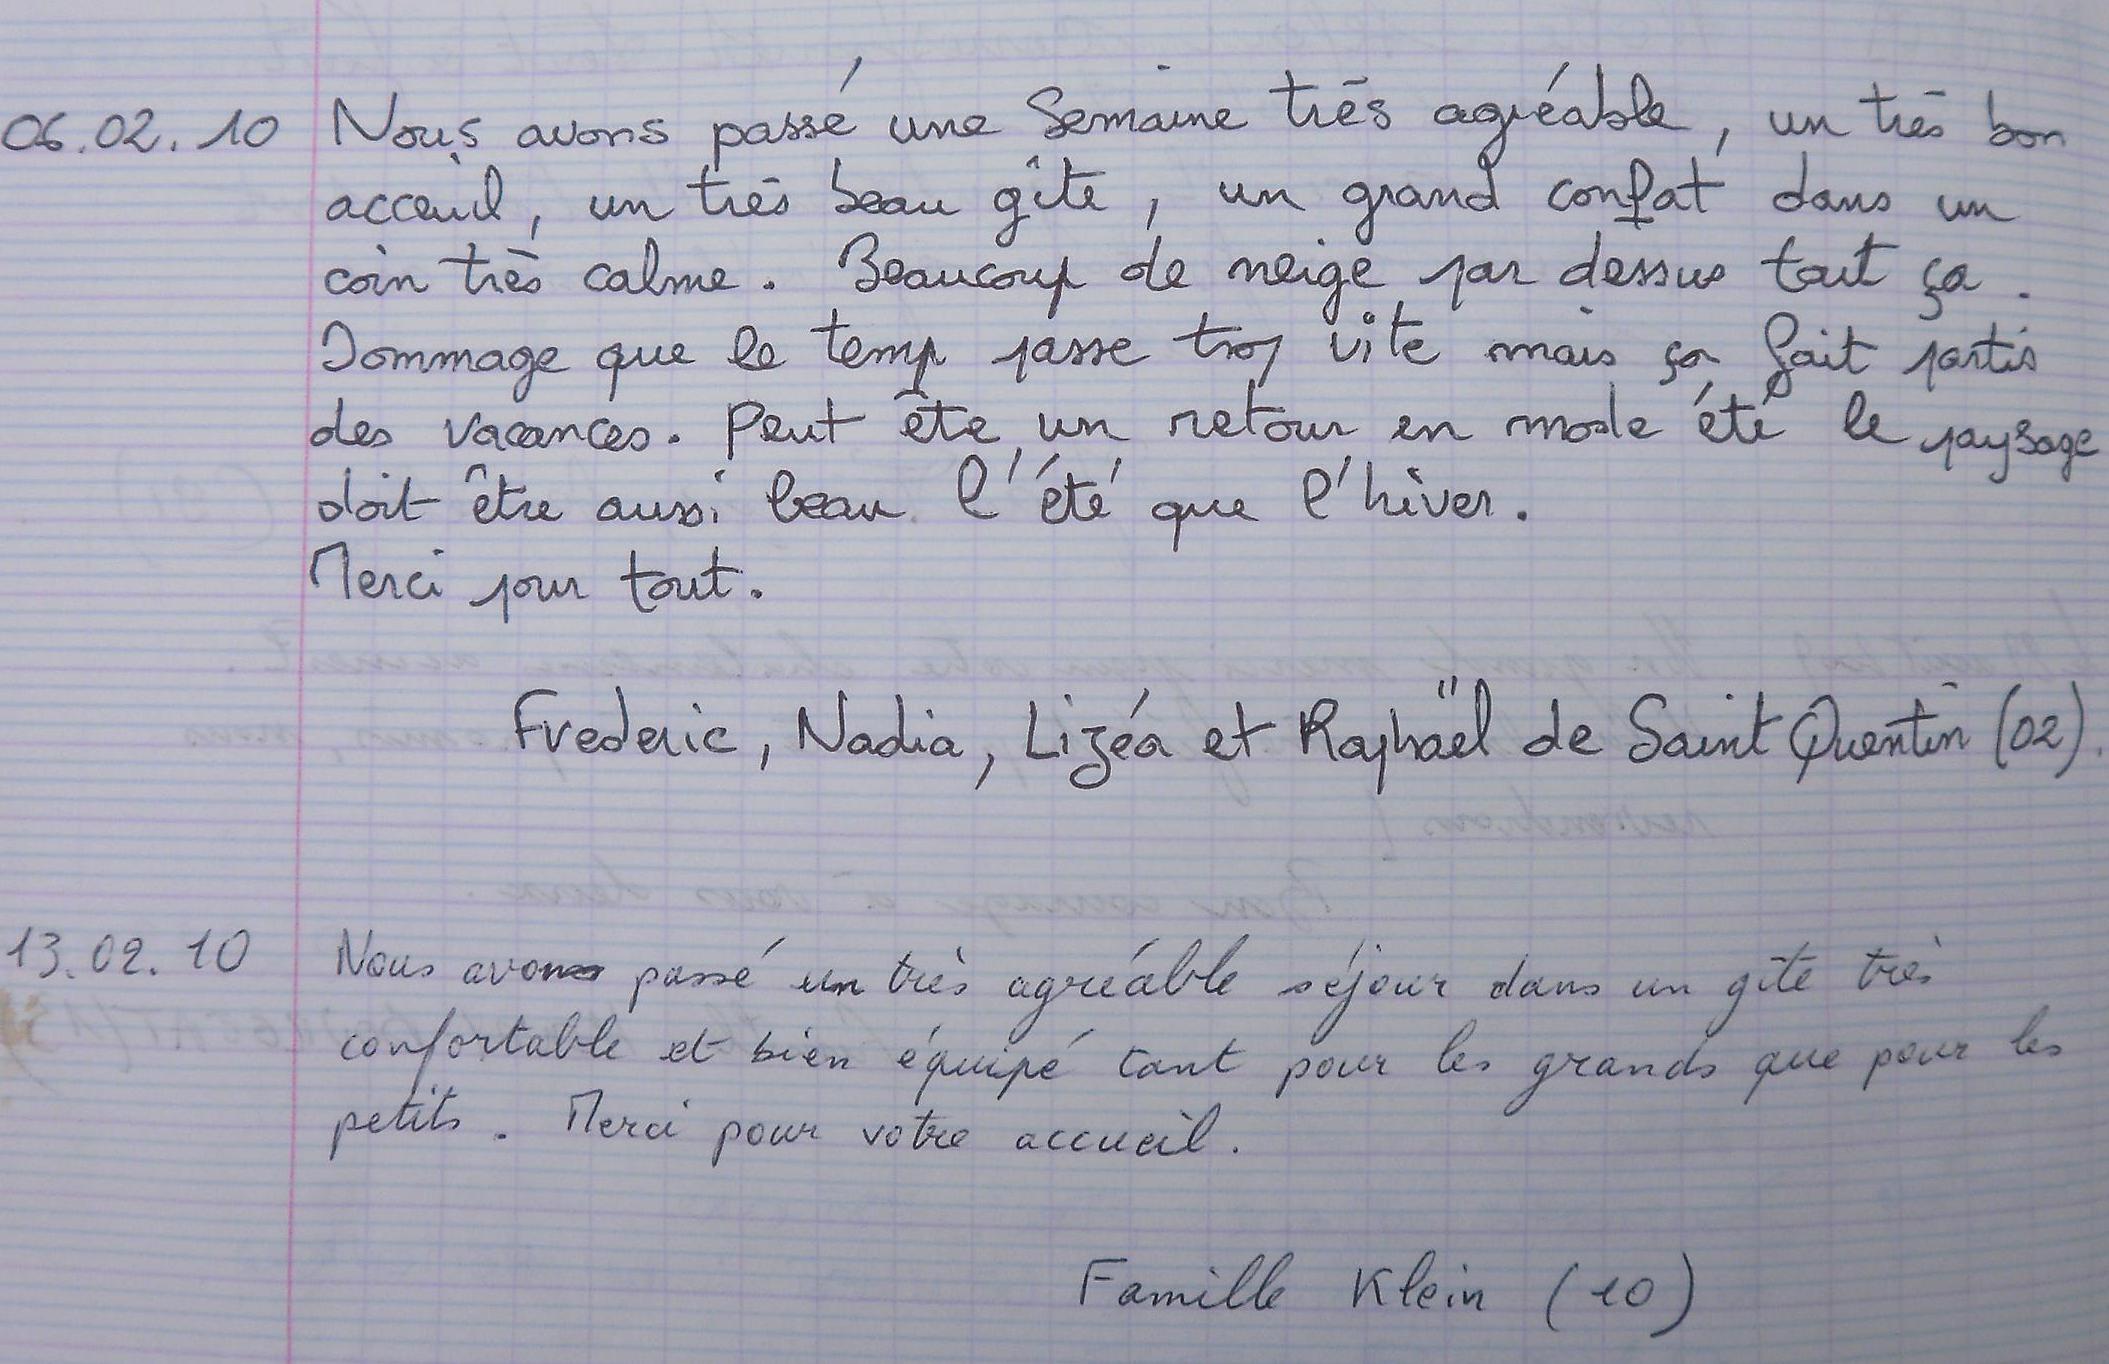 06.02.10 Nous avons passé une Semaine très agréable, un très bon
acceuil, un très beau gîte, un grand confort dans un
coin très calme. Beaucoup de neige par dessus tout ça.
Dommage que le temp passe trop vite mais ça fait partis
des vacances. Peut ête un retour en mode été le paysage
doit être aussi beau l'été que l'hiver.
Merci pour tout.
Frederic, Nadia, Lizéa et Raphaël de Saint Quentin (02).
13.02.10 Nous avons passé un très agréable séjour dans un gîte très
confortable et bien équipé tant pour les grands que pour les
petits. Merci pour votre accueil.
Famille Klein (10)